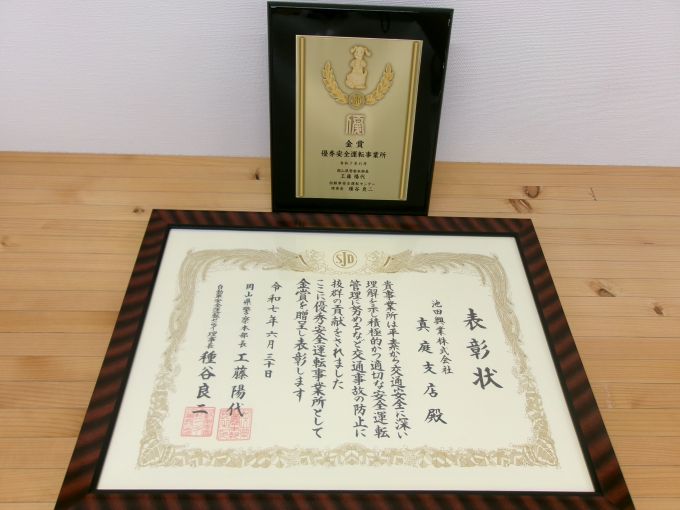 SJD
優
金賞
優秀安全運転事業所
令和7年六月
岡山県警察本部長
工藤 陽代
自動車安全運転センター
理事長 種谷 良二
SJD
表彰状
池田興業株式会社
真庭支店殿
貴事業所は平素から交通安全に深い
理解を示し積極的かつ適切な安全運転
管理に努めるなど交通事故の防止に
抜群の貢献をされました
ここに優秀安全運転事業所として
金賞を贈呈し表彰します
令和七年六月三十日
岡山県警察本部長 工藤陽代
自動車安全運転センター理事長 種谷良二